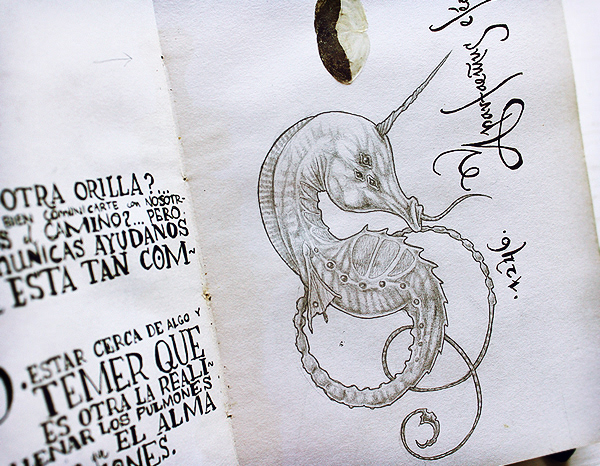 OTRA ORILLA?...
BIEN COMUNICARTE con NOSOTR-
S el CAMINO?... PERO,
MUNICAS AYUDANOS
ESTA TAN COM~
ESTAR CERCA DE ALGO Y
TEMER QUE
ES OTRA LA REALI~
LLENAR LOS PULMONES
EL ALMA
ONES.